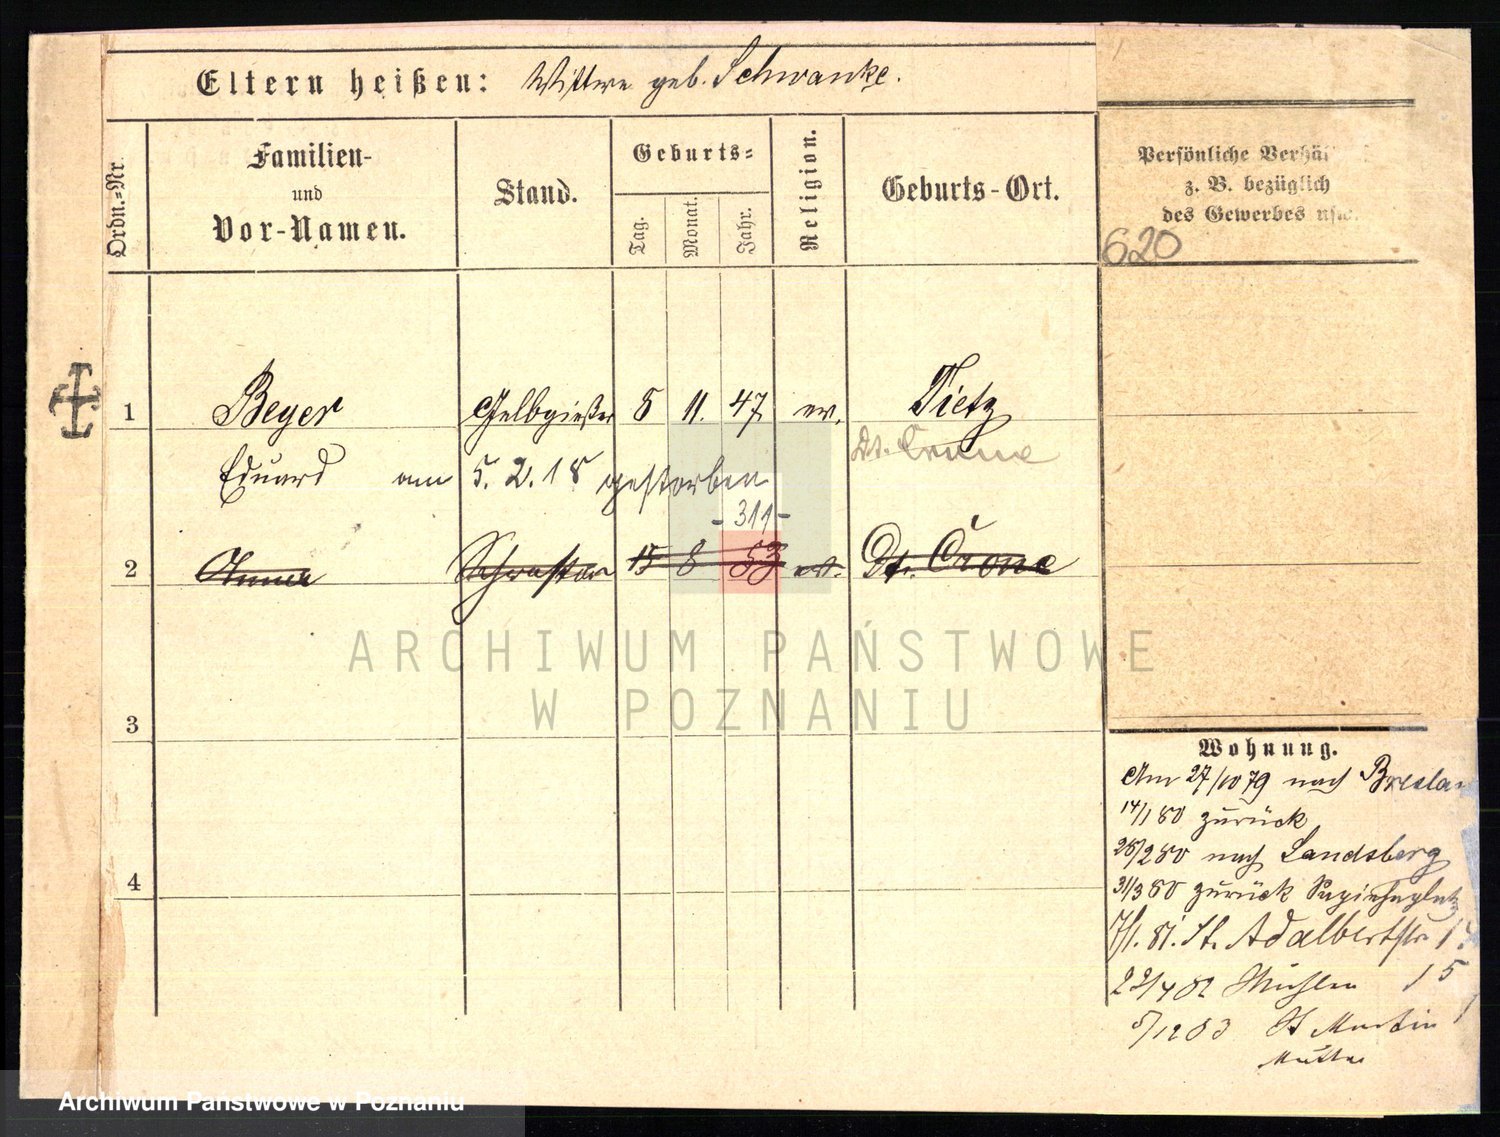 Eltern heißen: Wittwe geb. Schwanke.
Ordn.-Nr.
Familien-
und
Vor-Namen.
Stand.
Geburts-
Tag.
Monat.
Jahr.
Religion.
Geburts-Ort.
Persönliche Verhäl
z. B. bezüglich
des Gewerbes usw.
620
1 Beyer Gelbgießer 8 11. 47 ev. Tietz
Dt. Crone
Eduard am 5. 2. 18 gestorben
- 311 -
2 Anna Schwester 15 8 53 ev. Dt. Crone
3
4
Wohnung.
Am 27/10 79 nach Breslau
14/1 80 zurück
28/2 80 nach Landsberg
31/3 80 zurück
7/1. 81. St. Adalbertstr
22/4 82 Mühlen 15
5/12 83 St Martin
Mutter
ARCHIWUM PAŃSTWOWE
W POZNANIU
Archiwum Państwowe w Poznaniu